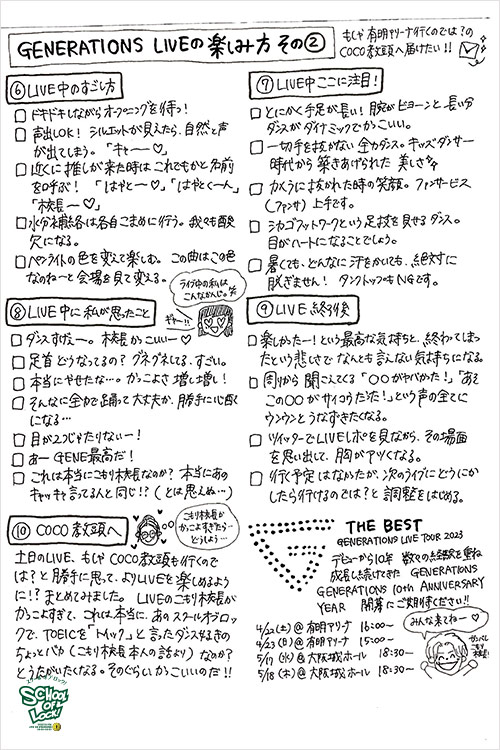 GENERATIONS LIVEの楽しみ方 その②
もしや有明アリーナ行くのでは?の
COCO教頭へ届けたい!!
⑥ LIVE中のすごし方
□ ドキドキしながらオープニングを待つ!
□ 声出しOK! シルエットが見えたら、自然と声
が出てしまう。「キャー♡」
□ 近くに推しが来た時はこれでもかと名前
を呼ぶ!「はやとー♡」「はやとくーん」
「校長ー♡」
□ 水分補給は各自こまめに行う。我々も酸
欠になる。
□ ペンライトの色を変えて楽しむ。この曲はこの色
なのねーと会場を見て変える。
ライブ中の私は
こんなかんじ。
ギャー!!
⑧ LIVE中に私が思ったこと
□ ダンスすげー。校長かっこいいー♡
□ 足首どうなってるの? グネグネしてる、すごい。
□ 本当にやせたな…。かっこよさ増し増し!
□ そんなに全力で踊って大丈夫か、勝手に心配
になる…
□ 目が2つじゃたりないー!
□ あー GENE最高だ!
□ これは本当にこもり校長なのか? 本当にあの
キャッキャ言ってる人と同じ!? (とは思えぬ…)
⑩ COCO教頭へ
こもり校長が
かっこよすぎたら…
どうしよう…
土日のLIVE、もしやCOCO教頭も行くので
は?と勝手に思って、よりLIVEを楽しめるよう
に!?まとめてみました。LIVEのこもり校長が
かっこよすぎて、これは本当に、あのスクールオブロッ
クで、TOEICを「トイック」と言ったダンス好きの
ちょっとバカ(こもり校長本人の話より)なのか?
とうたがいたくなる。そのぐらいかっこいいのだ!!
⑦ LIVE中ここに注目!
□ とにかく手足が長い! 腕がビヨーンと長い分
ダンスがダイナミックでかっこいい。
□ 一切手を抜かない全力ダンス。キッズダンサー
時代から築きあげられた美しさ
□ カメラに抜かれた時の笑顔。ファンサービス
(ファンサ)上手です。
□ シカゴフットワークという足技を見せるダンス。
目がハートになることでしょう。
□ 暑くても、どんなに汗をかいても、絶対に
脱ぎません! タンクトップもNGです。
⑨ LIVE 終了後
□ 楽しかったー!という最高な気持ちと、終わってしまっ
たという悲しいでなんとも言えない気持ちになる。
□ 周りから聞こえてくる「〇〇がヤバかった!」「あそ
この〇〇がサイコウだった!」という声の全てに
ウンウンとうなずきたくなる。
□ ツイッターでLIVEレポを見ながら、その場面
を思い出して、胸がアツくなる。
□ 行く予定はなかったが、次のライブにどうにか
したら行けるのでは?と調整をはじめる。
THE BEST
GENERATIONS LIVE TOUR 2023
デビューから10年 数々の経験を重ね
成長し続けてきた GENERATIONS
GENERATIONS 10th ANNIVERSARY
YEAR 開幕にご期待ください!!
4/22(土)@有明アリーナ 16:00〜
4/23(日)@有明アリーナ 15:00〜
5/17(水)@大阪城ホール 18:30〜
5/18(木)@大阪城ホール 18:30〜
みんな来てねー♡
SCHOOL
OF
LOCK!